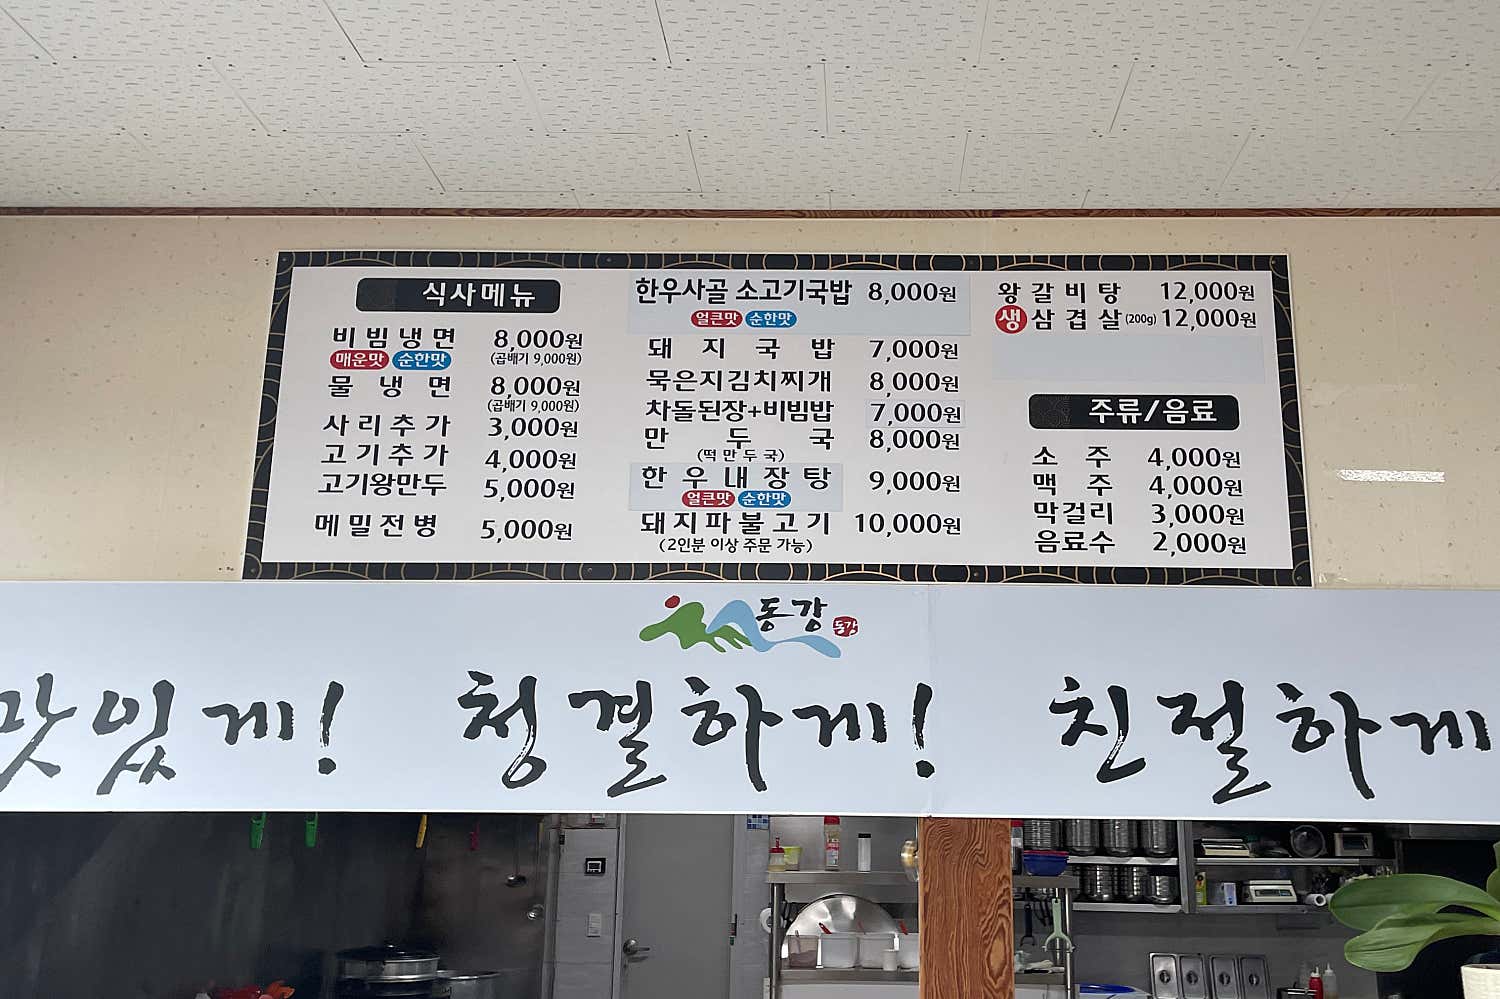 식사메뉴
비빔냉면 8,000원
매운맛 순한맛 (곱배기 9,000원)
물냉면 8,000원
(곱배기 9,000원)
사리추가 3,000원
고기추가 4,000원
고기왕만두 5,000원
메밀전병 5,000원
한우사골 소고기국밥 8,000원
얼큰맛 순한맛
돼지국밥 7,000원
묵은지김치찌개 8,000원
차돌된장+비빔밥 7,000원
만두국 8,000원
(떡만두국)
한우내장탕 9,000원
얼큰맛 순한맛
돼지파불고기 10,000원
(2인분 이상 주문 가능)
왕갈비탕 12,000원
생삼겹살(200g) 12,000원
주류/음료
소주 4,000원
맥주 4,000원
막걸리 3,000원
음료수 2,000원
동강 동강
맛있게! 청결하게! 친절하게